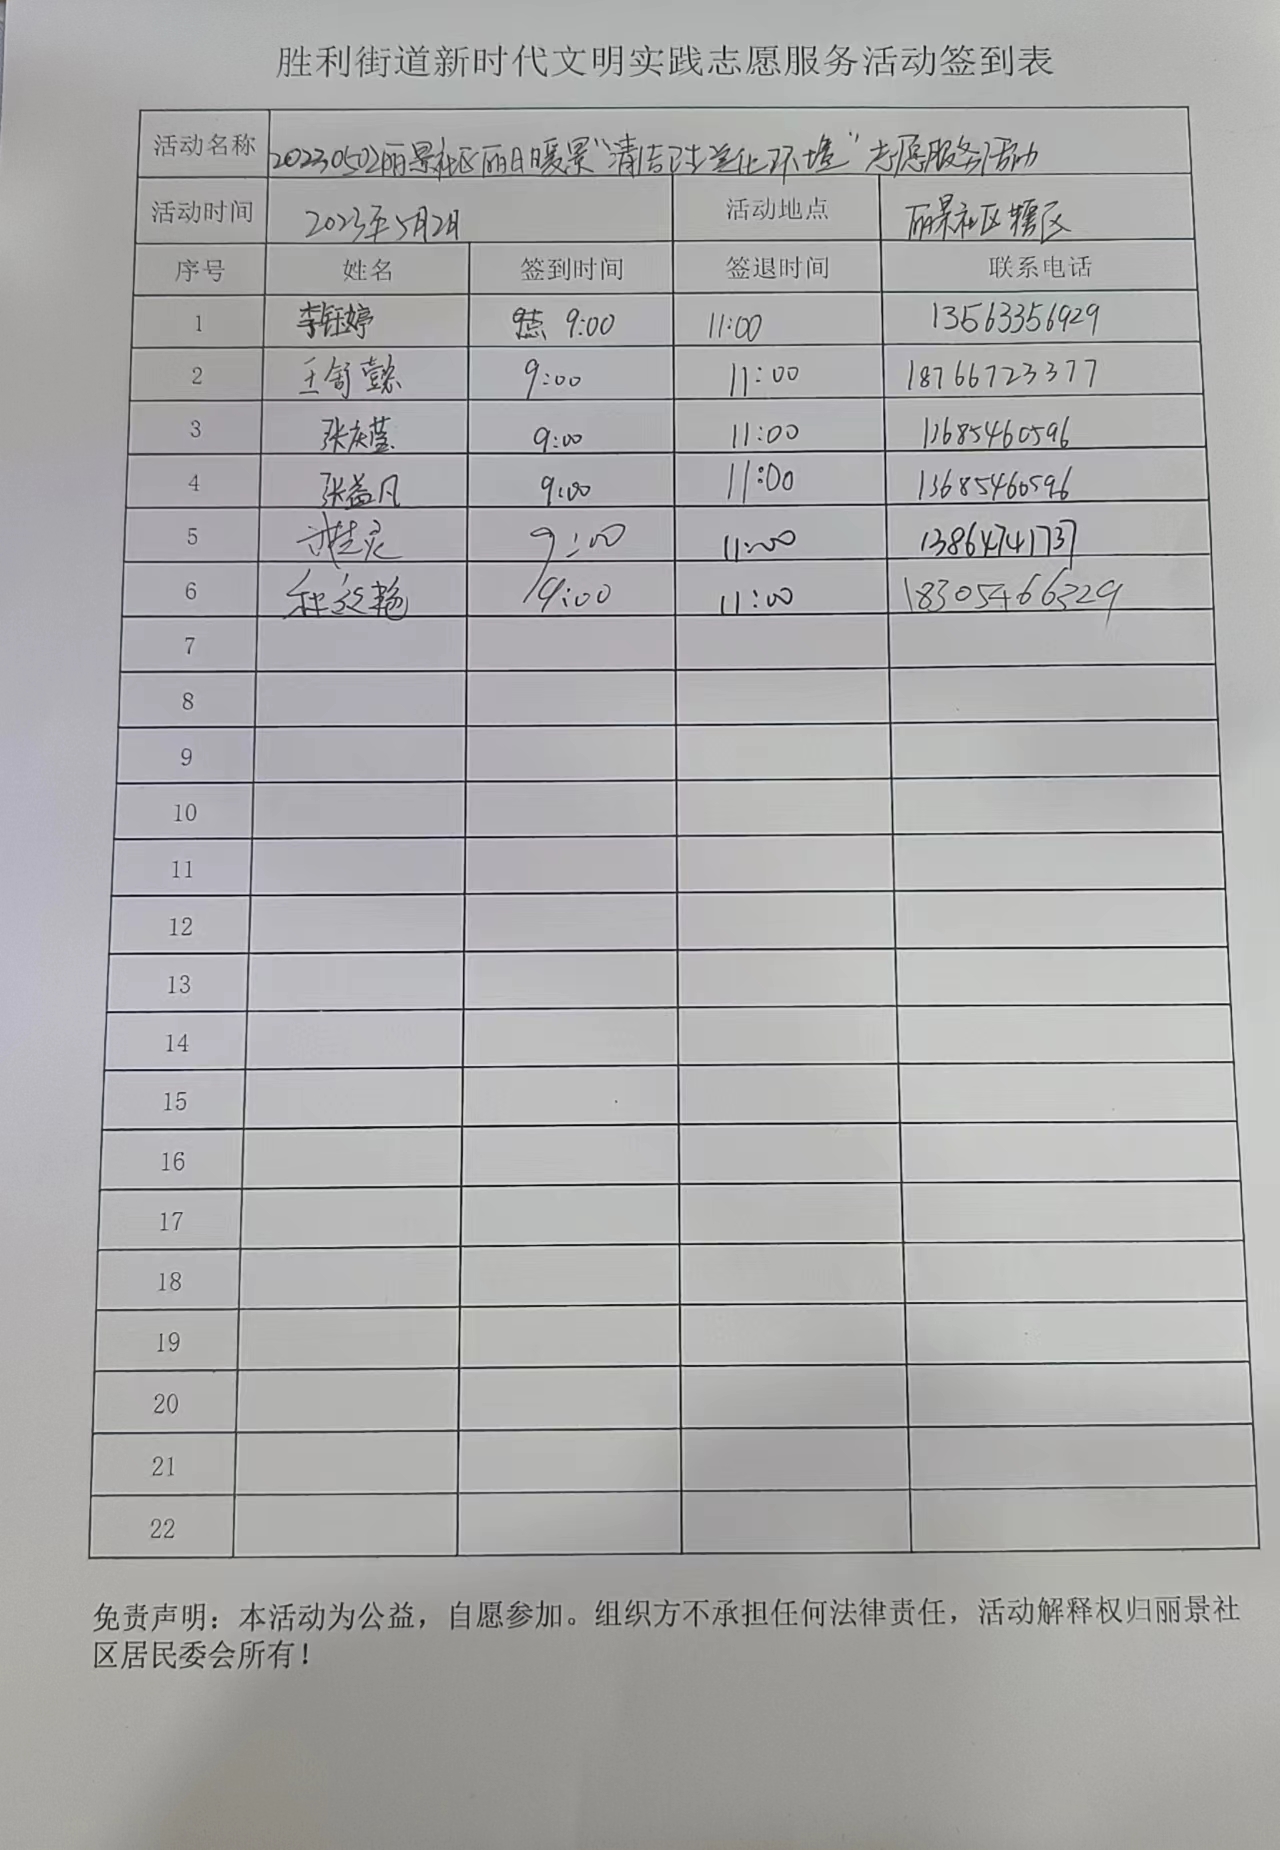 胜利街道新时代文明实践志愿服务活动签到表
活动名称 20230502丽景社区丽日暖景“清洁卫生 美化环境”志愿服务活动
活动时间 2023年5月2日 活动地点 丽景社区辖区
序号 姓名 签到时间 签退时间 联系电话
1 李钰婷 9:00 11:00 13563356929
2 王舒懿 9:00 11:00 18766723377
3 张庆莹 9:00 11:00 13685460596
4 张益凡 9:00 11:00 13685460596
5 9:00 11:00 13864741737
6 9:00 11:00 18305466329
7
8
9
10
11
12
13
14
15
16
17
18
19
20
21
22
免责声明：本活动为公益，自愿参加。组织方不承担任何法律责任，活动解释权归丽景社
区居民委会所有！